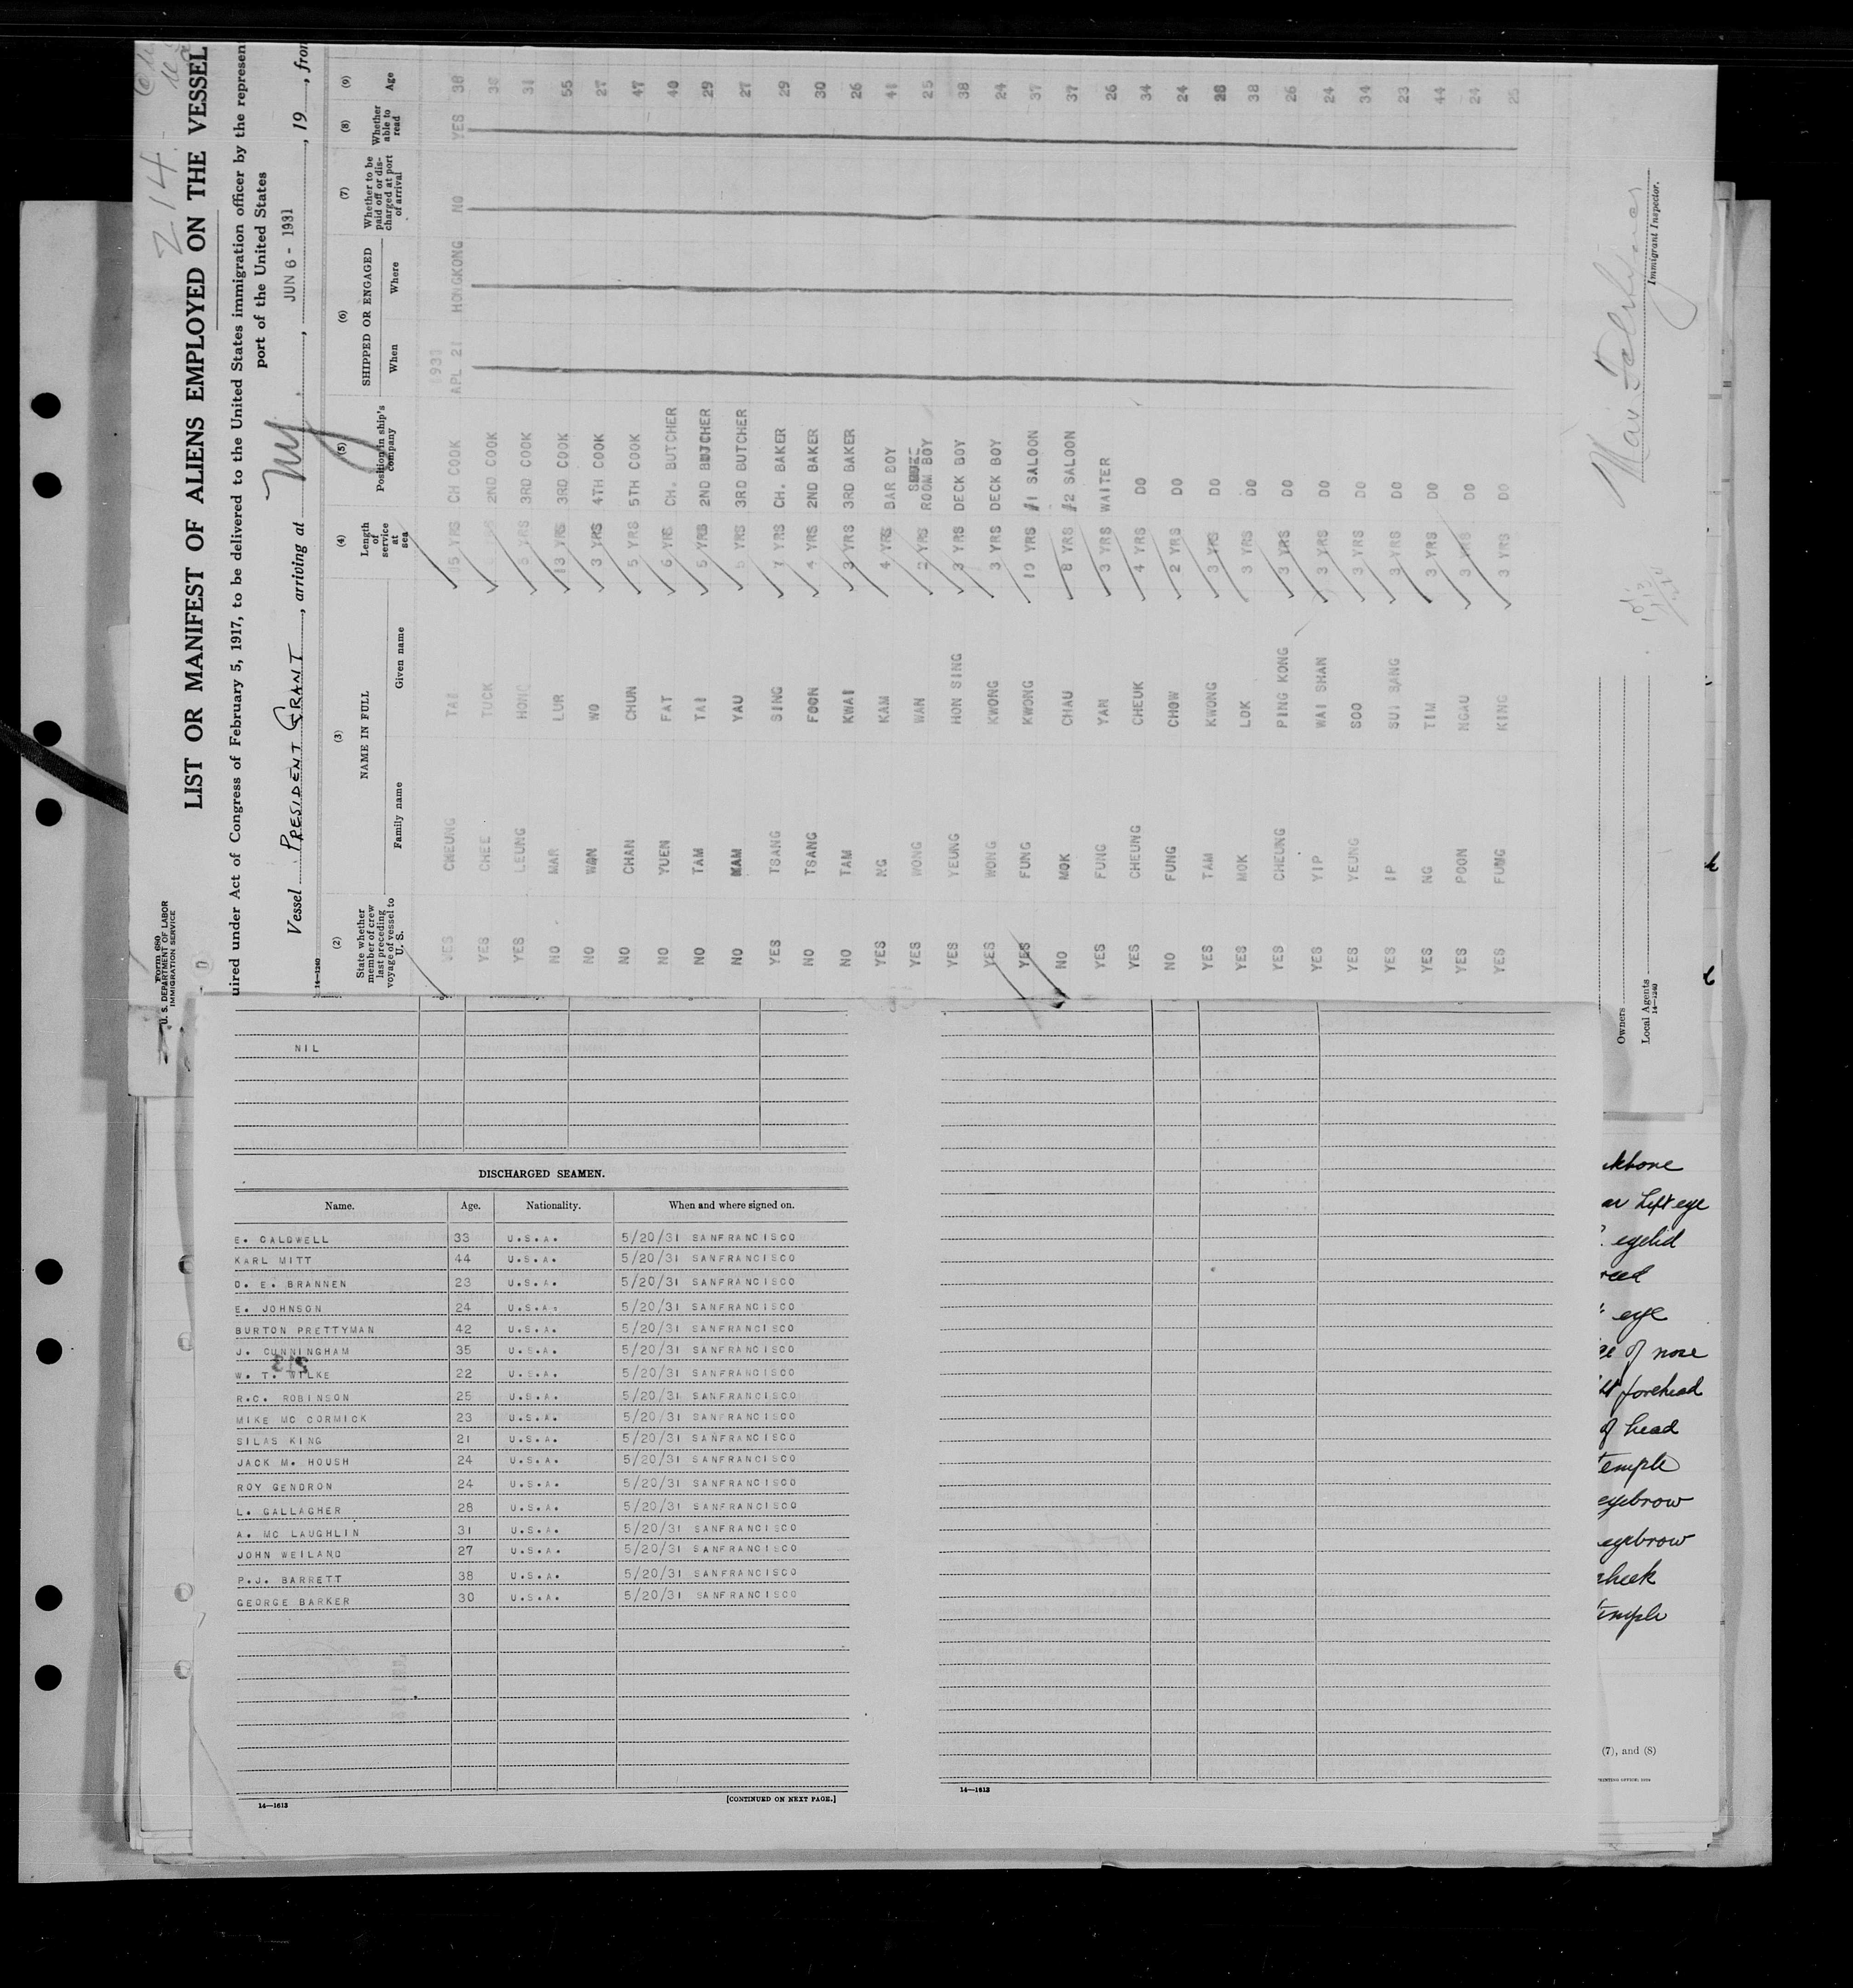 Form 680
U. S. DEPARTMENT OF LABOR
IMMIGRATION SERVICE
214
LIST OR MANIFEST OF ALIENS EMPLOYED ON THE VESSEL
uired under Act of Congress of February 5, 1917, to be delivered to the United States immigration officer by the represen
port of the United States
Vessel PRESIDENT GRANT, arriving at , JUN 6 - 1931, 19 , from
14-1240
(2) (3) (4) (5) (6) (7) (8) (9)
State whether member of crew last preceding voyage of vessel to U. S. NAME IN FULL Family name Given name Length of service at sea Position in ship's company SHIPPED OR ENGAGED When Where Whether to be paid off or discharged at port of arrival Whether able to read Age
YES CHEUNG TAI YRS CH COOK APL 21 HONGKONG NO YES 38
YES CHEE TUCK 2ND COOK
YES LEUNG HONG YRS 3RD COOK 31
NO MAR LUR 13 YRS 3RD COOK 55
NO WAN WO 3 YRS 4TH COOK 27
NO CHAN CHUN 5 YRS 5TH COOK 47
NO YUEN FAT 6 YRS CH. BUTCHER 40
NO TAM TAI YRS 2ND BUTCHER 29
NO MAM YAU YRS 3RD BUTCHER 27
YES TSANG SING 7 YRS CH. BAKER 29
NO TSANG FOON 4 YRS 2ND BAKER 30
NO TAM KWAI 3 YRS 3RD BAKER 26
YES NG KAM 4 YRS BAR BOY 41
YES WONG WAN 2 YRS ROOM BOY 25
YES YEUNG HON SING 3 YRS DECK BOY 38
YES WONG KWONG 3 YRS DECK BOY 24
YES FUNG KWONG 10 YRS #1 SALOON 37
NO MOK CHAU 8 YRS #2 SALOON 37
YES FUNG YAN 3 YRS WAITER 26
YES CHEUNG CHEUK 4 YRS DO 34
NO FUNG CHOW 2 YRS DO 24
YES TAM KWONG 3 YRS DO 28
YES MOK LOK 3 YRS DO 38
YES CHEUNG PING KONG 3 YRS DO 26
YES YIP WAI SHAN 3 YRS DO 24
YES YEUNG SOO 3 YRS DO 34
YES IP SUI SANG 3 YRS DO 23
YES NG TIM 3 YRS DO 44
YES POON NGAU 3 YRS DO 24
YES FUNG KING 3 YRS DO 25
Immigrant Inspector.
Owners
Local Agents
14-1240
NIL
DISCHARGED SEAMEN.
Name. Age. Nationality. When and where signed on.
E. CALDWELL 33 U.S.A. 5/20/31 SANFRANCISCO
KARL MITT 44 U.S.A. 5/20/31 SANFRANCISCO
D. E. BRANNEN 23 U.S.A. 5/20/31 SANFRANCISCO
E. JOHNSON 24 U.S.A. 5/20/31 SANFRANCISCO
BURTON PRETTYMAN 42 U.S.A. 5/20/31 SANFRANCISCO
J. CUNNINGHAM 35 U.S.A. 5/20/31 SANFRANCISCO
W. T. WILKE 22 U.S.A. 5/20/31 SANFRANCISCO
R.C. ROBINSON 25 U.S.A. 5/20/31 SANFRANCISCO
MIKE MC CORMICK 23 U.S.A. 5/20/31 SANFRANCISCO
SILAS KING 21 U.S.A. 5/20/31 SANFRANCISCO
JACK M. HOUSH 24 U.S.A. 5/20/31 SANFRANCISCO
ROY GENDRON 24 U.S.A. 5/20/31 SANFRANCISCO
L. GALLAGHER 28 U.S.A. 5/20/31 SANFRANCISCO
A. MC LAUGHLIN 31 U.S.A. 5/20/31 SANFRANCISCO
JOHN WEILAND 27 U.S.A. 5/20/31 SANFRANCISCO
P.J. BARRETT 38 U.S.A. 5/20/31 SANFRANCISCO
GEORGE BARKER 30 U.S.A. 5/20/31 SANFRANCISCO
14-1613
[CONTINUED ON NEXT PAGE.]
14-1613
ar left eye
eyelid
eye
of nose
forehead
of head
temple
eyebrow
eyebrow
cheek
temple
(7), and (8)